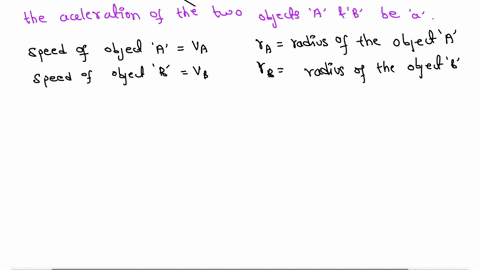 the aceleration of the two objects 'A' & 'B' be 'a'.
speed of object 'A' = VA
rA = radius of the object 'A'
speed of object 'B' = VB
rB = radius of the object 'B'